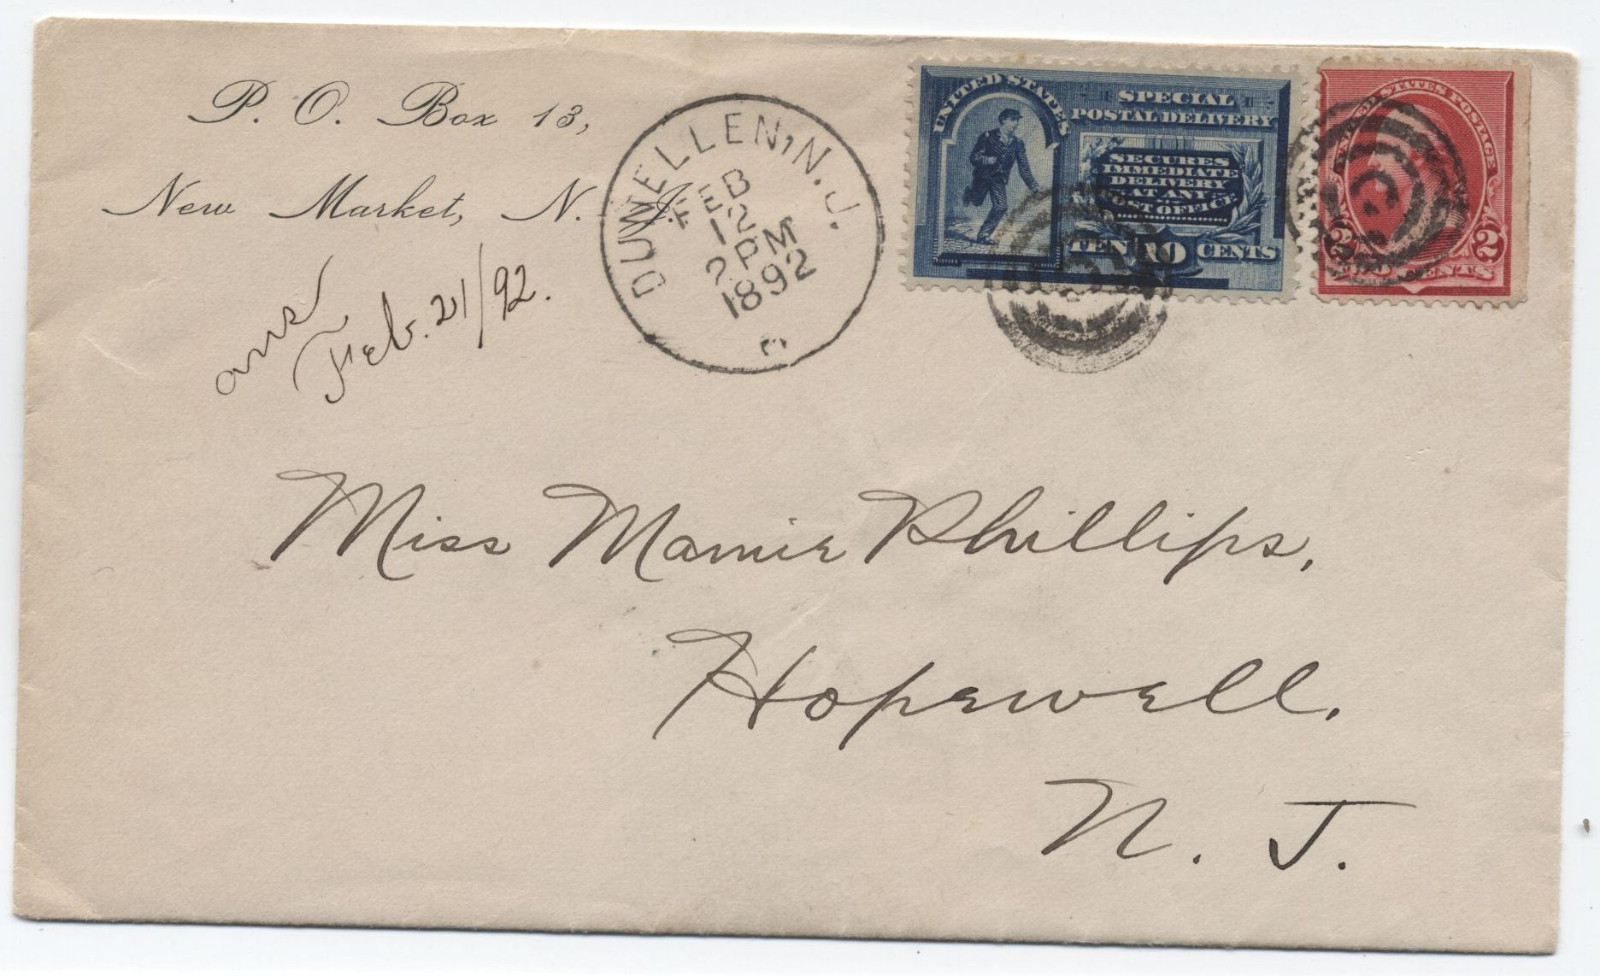 P. O. Box 13,
New Market, N. J.
ans
Feb. 21/92.
DUNELLEN, N.J.
FEB
12
2 PM
1892
UNITED STATES
SPECIAL
POSTAL DELIVERY
SECURES
IMMEDIATE
DELIVERY
AT ANY
POST OFFICE
TEN 10 CENTS
UNITED STATES POSTAGE
2 2
TWO CENTS
Miss Mamie Phillips,
Hopewell,
N. J.